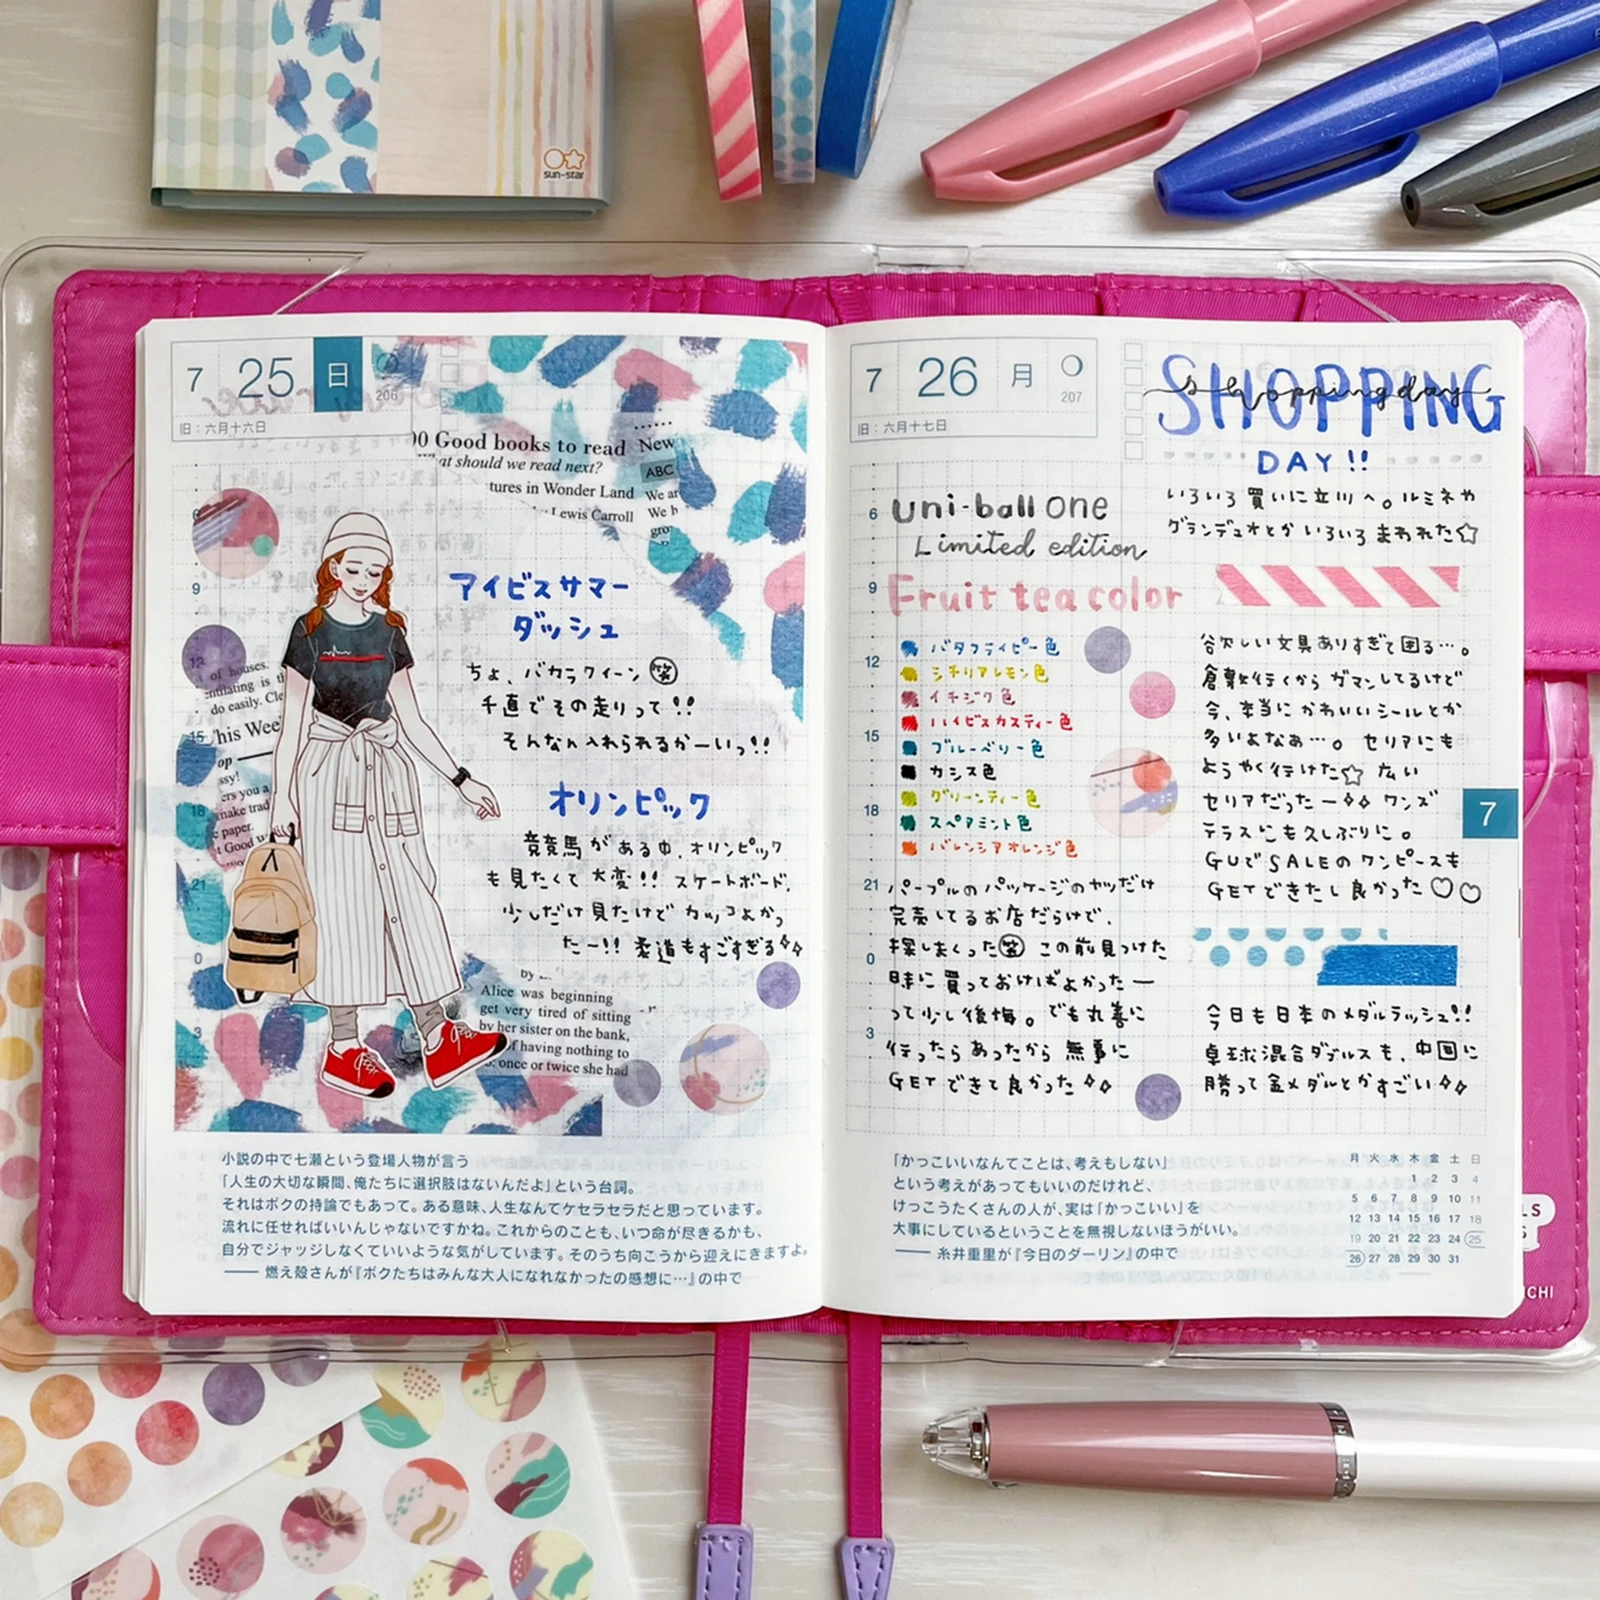 sun-star
7 25 日
206
旧：六月十六日
00 Good books to read
New
What should we read next?
ABC
tures in Wonder Land
We ar
Lewis Carroll
We h
gro
6
9
アイビスサマー
ダッシュ
12
ちょ、バカラクイーン笑
千直でその走りって!!
そんなん入れられるかーいっ!!
of houses.
entilating is th
do easily. Cle
15
his Week
op
ssy!
ers you a
make trad
18
e paper.
t Good w
オリンピック
競競馬がある中、オリンピック
も見たくて大変!! スケートボード、
21
少しだけ見たけどカッコよかっ
たー!! 柔道もすごすぎる
0
by
Alice was beginning
get very tired of sitting
by her sister on the bank,
of having nothing to
once or twice she had
3
小説の中で七瀬という登場人物が言う
「人生の大切な瞬間、俺たちに選択肢はないんだよ」という台詞。
それはボクの持論でもあって。ある意味、人生なんてケセラセラだと思っています。
流れに任せればいいんじゃないですかね。これからのことも、いつ命が尽きるかも、
自分でジャッジしなくていいような気がしています。そのうち向こうから迎えにきますよ。
―― 燃え殻さんが『ボクたちはみんな大人になれなかったの感想に…』の中で
7 26 月
207
旧：六月十七日
SHOPPING
shopping day
DAY!!
いろいろ買いに立川へ。ルミネや
グランデュオとかいろいろまわれた☆
6
uni-ball one
Limited edition
9
Fruit tea color
バタフライピー色
シチリアレモン色
12
イチジク色
ハイビスカスティー色
15
ブルーベリー色
カシス色
グリーンティー色
18
スペアミント色
バレンシアオレンジ色
21
パープルのパッケージのヤツだけ
完売してるお店だらけで、
探しまくった笑 この前見つけた
0
時に買っておけばよかったー
って少し後悔。でも丸善に
3
行ったらあったから無事に
GETできて良かった
欲しい文具ありすぎて困る…。
倉敷行くからガマンしてるけど
今、本当にかわいいシールとか
多いよなあ…。セリアにも
ようやく行けた☆ 広い
セリアだったー ワンズ
テラスにも久しぶりに。
GUでSALEのワンピースも
GETできたし良かった♡♡
今日も日本のメダルラッシュ!!
卓球混合ダブルスも、中国に
勝って金メダルとかすごい
7
「かっこいいなんてことは、考えもしない」
という考えがあってもいいのだけれど、
けっこうたくさんの人が、実は「かっこいい」を
大事にしているということを無視しないほうがいい。
―― 糸井重里が『今日のダーリン』の中で
月 火 水 木 金 土 日
1 2 3 4
5 6 7 8 9 10 11
12 13 14 15 16 17 18
19 20 21 22 23 24 25
26 27 28 29 30 31
LS
ICHI